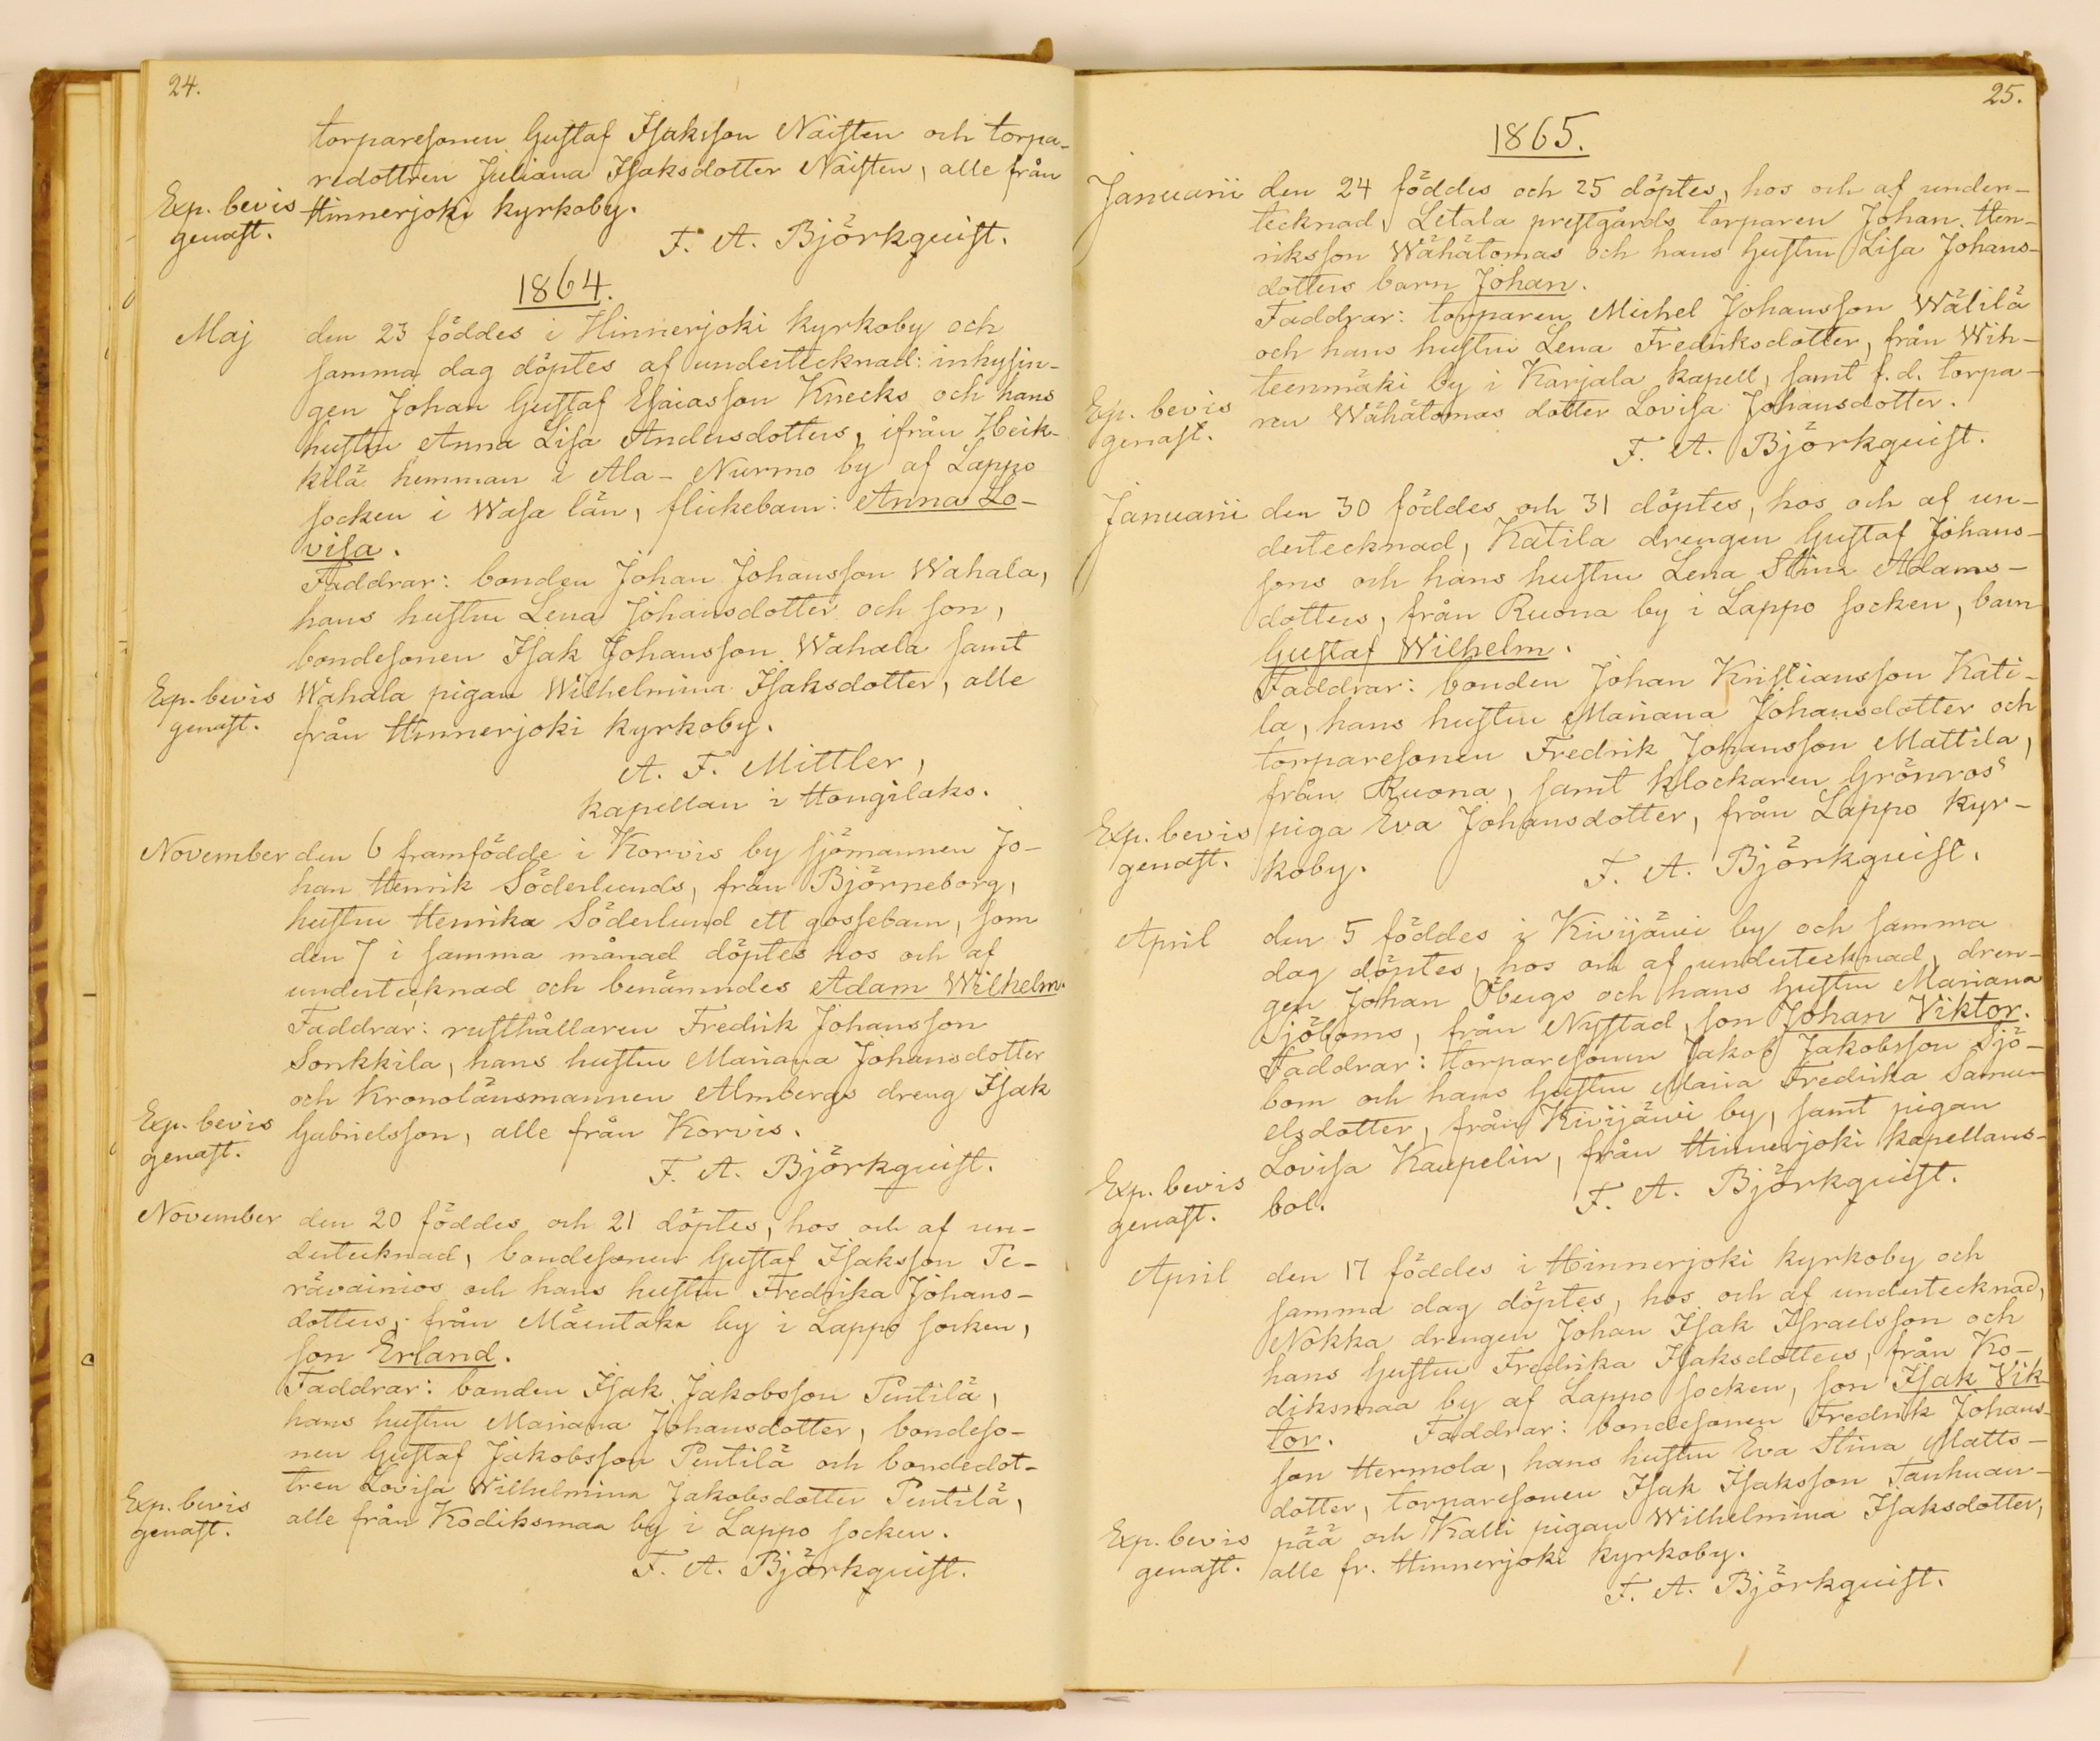 24.
torparesonen Gustaf Isaksson Näisten och torpa-
redottren Juliana Isaksdotter Näisten, alle från
Exp. bevis Hinnerjoki kyrkoby.
genast.
F. A. Björkquist.
1864.
Maj den 23 föddes i Hinnerjoki kyrkoby och
samma dag döptes af undertecknad: inhysin-
gen Johan Gustaf Esaiasson Knecks och hans
hustru Anna Lisa Andersdotters, ifrån Heik-
kilä hemman i Ala-Nurmo by af Lappo
socken i Wasa län, flickebarn: Anna Lo-
visa.
Faddrar: bonden Johan Johansson Wahala,
hans hustru Lena Johansdotter och son,
bondesonen Isak Johansson Wahala samt
Exp. bevis Wahala pigan Wilhelmina Isaksdotter, alle
genast. från Hinnerjoki kyrkoby.
A. F. Mittler,
kapellan i Hongilaks.
November den 6 framfödde i Korvis by sjömannen Jo-
han Henrik Söderlunds, från Björneborg,
hustru Henrika Söderlund ett gossebarn, som
den 7 i samma månad döptes hos och af
undertecknad och benämndes Adam Wilhelm.
Faddrar: rusthållaren Fredrik Johansson
Sonkkila, hans hustru Mariana Johansdotter
och Kronolänsmannen Almbergs dreng Isak
Exp. bevis Gabrielsson, alle från Korvis.
genast.
F. A. Björkquist.
November den 20 föddes och 21 döptes, hos och af un-
dertecknad, bondesonen Gustaf Isaksson Pe-
rävainios och hans hustru Fredrika Johans-
dotters, från Mäentaka by i Lappo socken,
son Erland.
Faddrar: bonden Isak Jakobsson Pentilä,
hans hustru Mariana Johansdotter, bondeso-
nen Gustaf Jakobsson Pentilä och bondedot-
tren Lovisa Wilhelmina Jakobsdotter Pentilä,
Exp. bevis alle från Kodiksmaa by i Lappo socken.
genast.
F. A. Björkquist.
25.
1865.
Januarii den 24 föddes och 25 döptes, hos och af under-
tecknad, Letala prestgårds torparen Johan Hen-
riksson Wähätomas och hans hustru Lisa Johans-
dotters barn Johan.
Faddrar: torparen Michel Johansson Wälilä
och hans hustru Lena Fredriksdotter, från Wih-
teenmäki by i Karjala kapell, samt f. d. torpa-
Exp. bevis ren Wähätomas dotter Lovisa Johansdotter.
genast.
F. A. Björkquist.
Januarii den 30 föddes och 31 döptes, hos och af un-
dertecknad, Katila drengen Gustaf Johans-
sons och hans hustru Lena Stina Adams-
dotters, från Ruona by i Lappo socken, barn
Gustaf Wilhelm.
Faddrar: bonden Johan Kristiansson Kati-
la, hans hustru Mariana Johansdotter och
torparesonen Fredrik Johansson Mattila,
från Ruona, samt klockaren Grönroos
Exp. bevis piga Eva Johansdotter, från Lappo kyr-
genast. koby.
F. A. Björkquist.
April den 5 föddes i Kivijärvi by och samma
dag döptes, hos och af undertecknad, dren-
gen Johan Öbergs och hans hustru Mariana
Sjöboms, från Nystad, son Johan Viktor.
Faddrar: torparesonen Jakob Jakobsson Sjö-
bom och hans hustru Maria Fredrika Samu-
elsdotter, från Kivijärvi by, samt pigan
Lovisa Kaupelin, från Hinnerjoki kapellans-
Exp. bevis bol.
genast.
F. A. Björkquist.
April den 17 föddes i Hinnerjoki kyrkoby och
samma dag döptes, hos och af undertecknad,
Nokka drengen Johan Isak Israelsson och
hans hustru Fredrika Isaksdotters, från Ko-
diksmaa by af Lappo socken, son Isak Vik-
tor. Faddrar: bondesonen Fredrik Johans-
son Hermola, hans hustru Eva Stina Matts-
dotter, torparesonen Isak Isaksson Tanhuan-
Exp. bevis pää och Kalli pigan Wilhelmina Isaksdotter,
genast. alle fr. Hinnerjoki kyrkoby.
F. A. Björkquist.